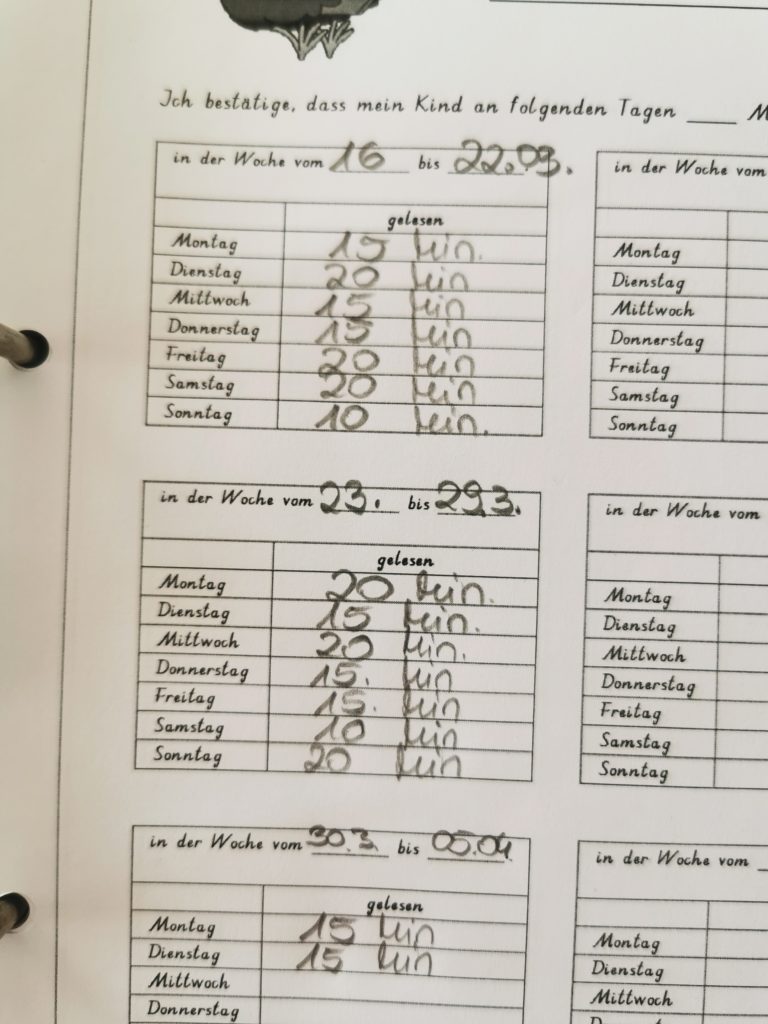 Ich bestätige, dass mein Kind an folgenden Tagen ____ M
in der Woche vom 16 bis 22.03.
gelesen
Montag 15 Min.
Dienstag 20 Min
Mittwoch 15 Min
Donnerstag 15 Min
Freitag 20 Min
Samstag 20 Min
Sonntag 10 Min.
in der Woche vom
Montag
Dienstag
Mittwoch
Donnerstag
Freitag
Samstag
Sonntag
in der Woche vom 23. bis 29.3.
gelesen
Montag 20 Min.
Dienstag 15 Min.
Mittwoch 20 Min.
Donnerstag 15. Min
Freitag 15. Min
Samstag 10 Min
Sonntag 20 Min
in der Woche vom
Montag
Dienstag
Mittwoch
Donnerstag
Freitag
Samstag
Sonntag
in der Woche vom 30.3. bis 05.04
gelesen
Montag 15 Min
Dienstag 15 Min
Mittwoch
Donnerstag
in der Woche vom _
Montag
Dienstag
Mittwoch